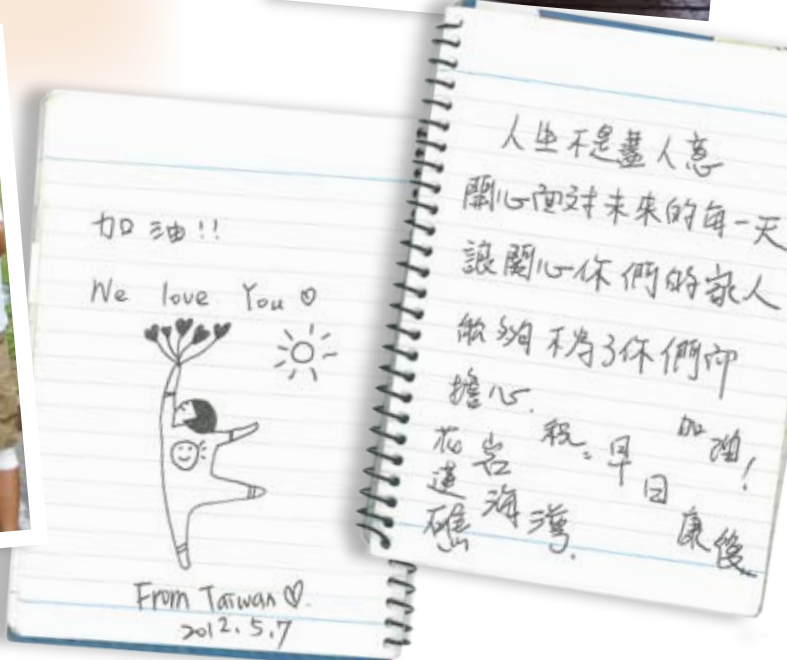 加油!!
We love You ♡
From Taiwan ♡.
2012.5.7
人生不是盡人意
開心面对未來的每一天
讓關心你們的家人
能夠不為了你們而
擔心.
祝:早日康復
加油!
花蓮礁岩海灣.